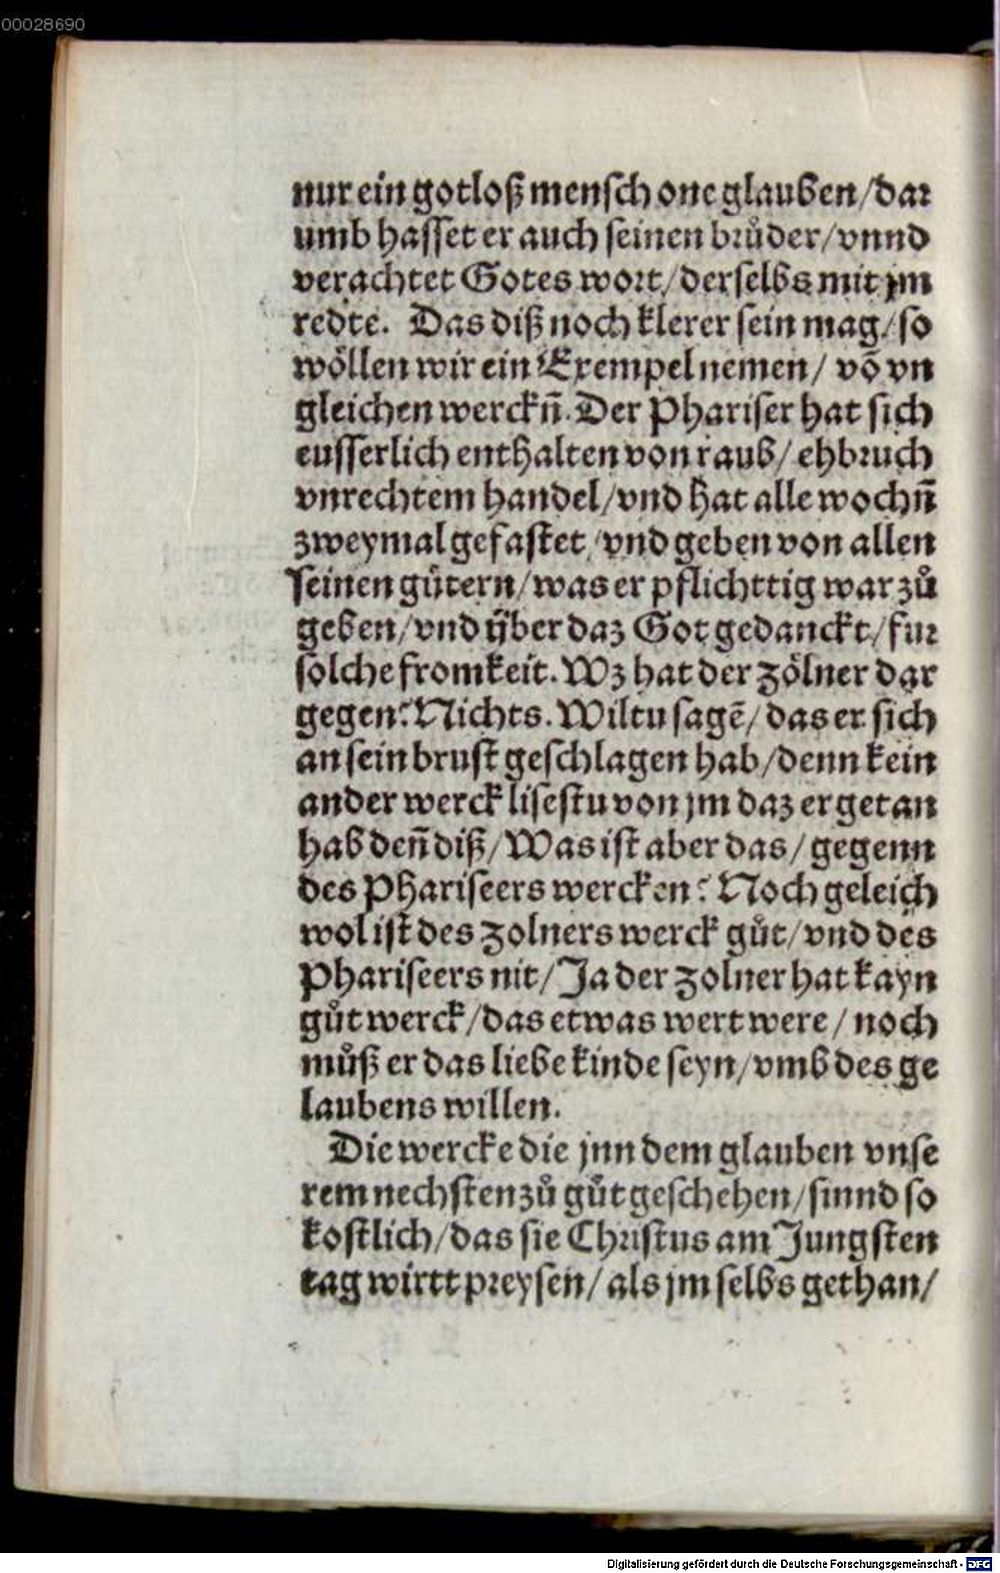 00028690
nur ein gotloß mensch one glauben/dar
umb hasset er auch seinen brůder/vnnd
verachtet Gotes wort/der selbs mit jm
redte. Das diß noch klerer sein mag/so
wöllen wir ein Exempel nemen/ vō vn
gleichen werckn̄. Der Phariser hat sich
eusserlich enthalten von raub/ ehbruch
vnrechtem handel/vnd hat alle wochn̄
zweymal gefastet/vnd geben von allen
seinen gůtern/was er pflichttig war zů
geben/vnd ÿber daz Got gedanckt/fur
solche fromkeit. Wz hat der zölner dar
gegen? Nichts. Wiltu sagē/das er sich
an sein brust geschlagen hab/denn kein
ander werck lisestu von jm daz er getan
hab den̄ diß/Was ist aber das/gegenn
des Phariseers wercken? Noch geleich
wol ist des zolners werck gůt/vnd des
Phariseers nit/Ja der zolner hat kayn
gůt werck/das etwas wert were/noch
můß er das liebe kinde seyn/vmb des ge
laubens willen.
Die wercke die jnn dem glauben vnse
rem nechsten zů gůt geschehen/sinnd so
kostlich/das sie Christus am Jungsten
tag wirtt preysen/als jm selbs gethan/
Digitalisierung gefördert durch die Deutsche Forschungsgemeinschaft - DFG